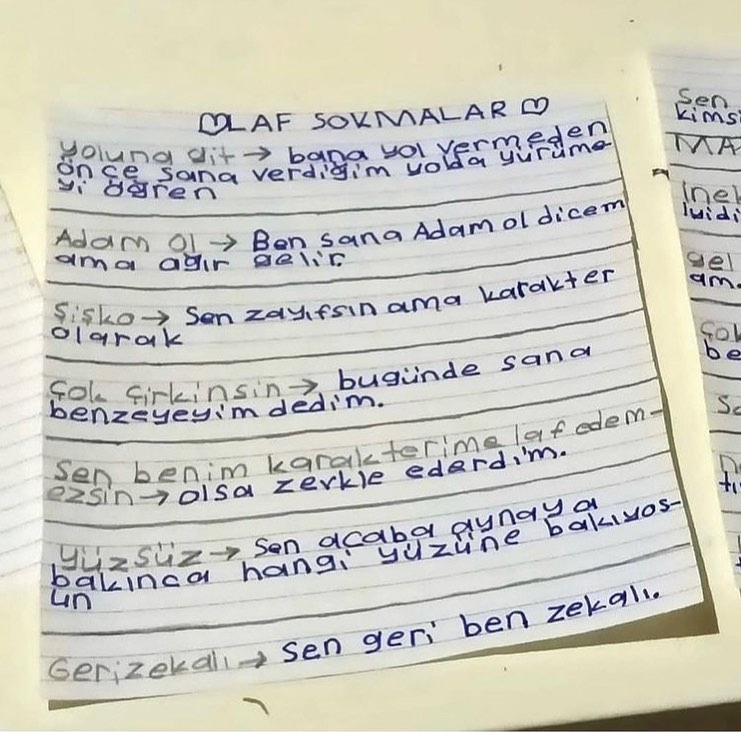 ♡LAF SOKMALAR♡
yoluna git → bana yol vermeden
önce sana verdiğim yolda yürüme-
yi öğren
Adam ol → Ben sana Adam ol dicem
ama ağır gelir.
Şişko → Sen zayıfsın ama karakter
olarak
Çok çirkinsin → bugünde sana
benzeyeyim dedim.
Sen benim karakterime laf edem-
ezsin → olsa zevkle ederdim.
Yüzsüz → Sen acaba aynaya
bakınca hangi yüzüne bakıyos-
un
Gerizekalı → Sen geri ben zekalı.
Sen
MA
gel
am.
be